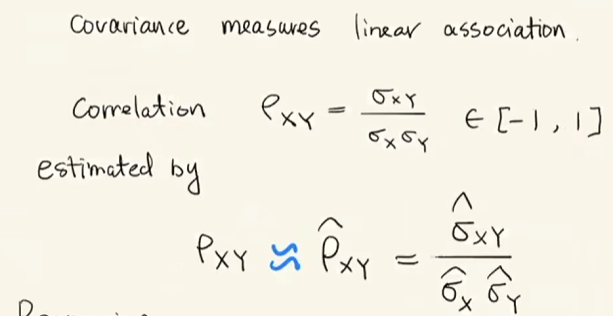 Covariance measures linear association.
Correlation ρXY = σXY / σX σY ∈ [-1, 1]
estimated by
ρXY ≈ ρ̂XY = σ̂XY / σ̂X σ̂Y